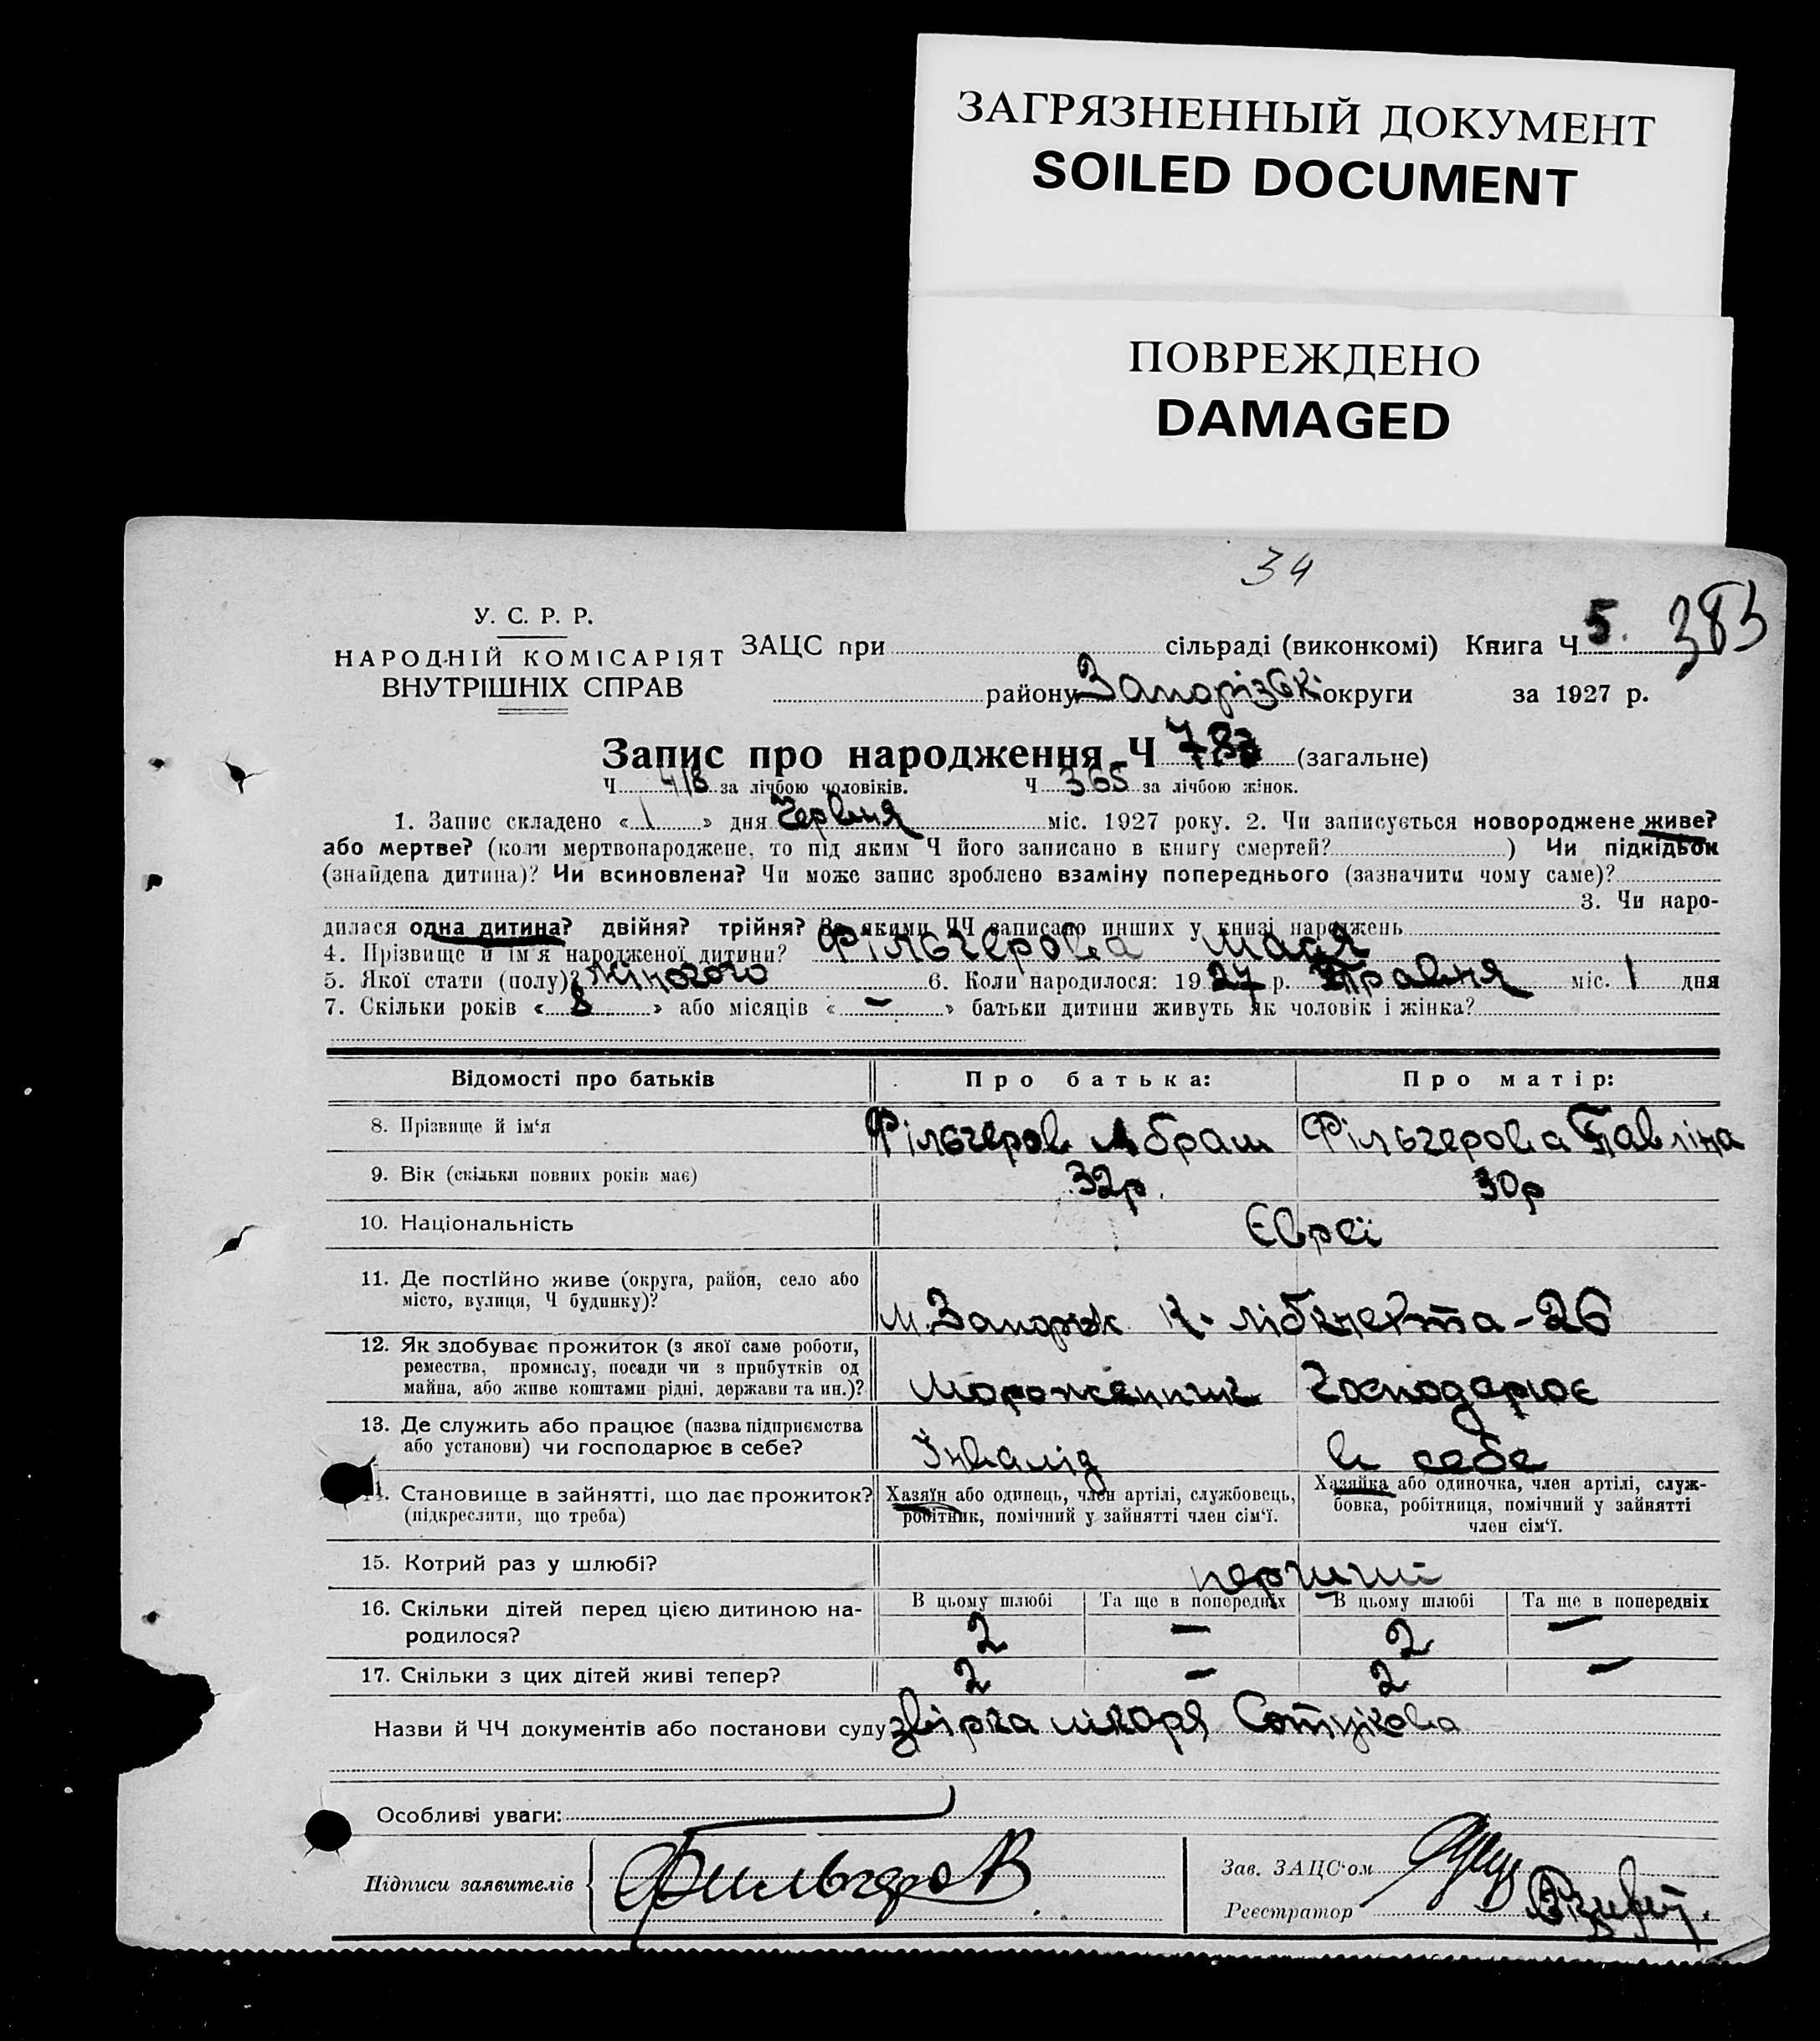 ЗАГРЯЗНЕННЫЙ ДОКУМЕНТ
SOILED DOCUMENT
ПОВРЕЖДЕНО
DAMAGED
34
У. С. Р. Р.
НАРОДНІЙ КОМІСАРІЯТ
ВНУТРІШНІХ СПРАВ
ЗАЦС при сільраді (виконкомі) Книга Ч 5. 383
району Запорізьк. округи за 1927 р.
Запис про народження Ч 783 (загальне)
Ч 418 за лічбою чоловіків. Ч 365 за лічбою жінок.
1. Запис складено « 1 » дня Червня міс. 1927 року. 2. Чи записується новороджене живе?
або мертве? (коли мертвонароджене, то під яким Ч його записано в книгу смертей? ) Чи підкідьок
(знайдена дитина)? Чи всиновлена? Чи може запис зроблено взаміну попереднього (зазначити чому саме)?
3. Чи наро-
дилася одна дитина? двійня? трійня? За якими ЧЧ записано инших у книзі народжень
4. Прізвище й ім'я народженої дитини? Фільгерова Мася
5. Якої стати (полу)? жіночого 6. Коли народилося: 1927 р. Травня міс. 1 дня
7. Скільки років « 8 » або місяців « – » батьки дитини живуть як чоловік і жінка?
Відомості про батьків Про батька: Про матір:
8. Прізвище й ім'я Фільгеров Абрам Фільгерова Павліна
9. Вік (скільки повних років має) 32р. 30р
10. Національність Євреї
11. Де постійно живе (округа, район, село або
місто, вулиця, Ч будинку)?
м. Запоріж К. Лібкнехта - 26
12. Як здобуває прожиток (з якої саме роботи,
ремества, промислу, посади чи з прибутків од
майна, або живе коштами рідні, держави та ин.)?
Мороженник Господарює
13. Де служить або працює (назва підприємства
або установи) чи господарює в себе?
Інвалід в себе
14. Становище в зайнятті, що дає прожиток?
(підкреслити, що треба)
Хазяїн або одинець, член артілі, службовець,
робітник, помічний у зайнятті член сім'ї.
Хазяйка або одиночка, член артілі, служ-
бовка, робітниця, помічний у зайнятті
член сім'ї.
15. Котрий раз у шлюбі? перший
16. Скільки дітей перед цією дитиною на-
родилося?
В цьому шлюбі Та ще в попередніх В цьому шлюбі Та ще в попередніх
2 – 2 –
17. Скільки з цих дітей живі тепер? 2 – 2 –
Назви й ЧЧ документів або постанови суду лікаря
Особливі уваги:
Підписи заявителів
Зав. ЗАЦС'ом
Реєстратор